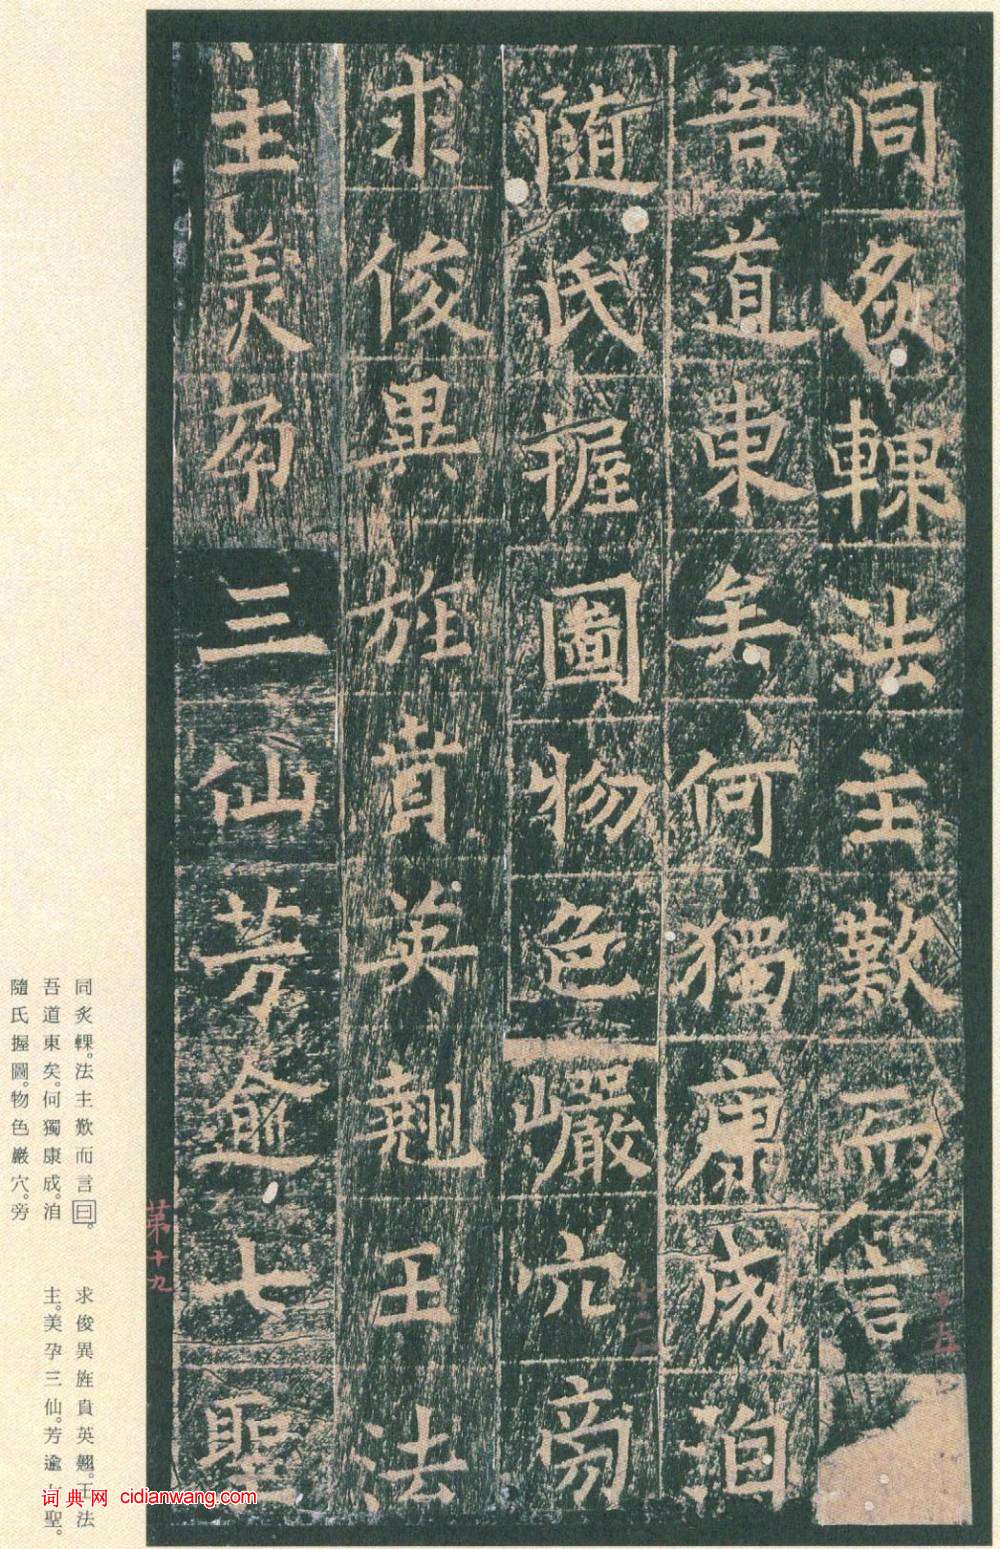 同炙輠法主歎而言
吾道東矣何獨康成洎
随氏握圖物色巖穴旁
求俊異旌賁英翹王法
主美孕三仙芳逾七聖
十五
第十九
同炙輠。法主歎而言曰。
吾道東矣。何獨康成。洎
隨氏握圖。物色巖穴。旁
求俊異旌賁英翹。王法
主。美孕三仙。芳逾七聖。
词典网 cidianwang.com